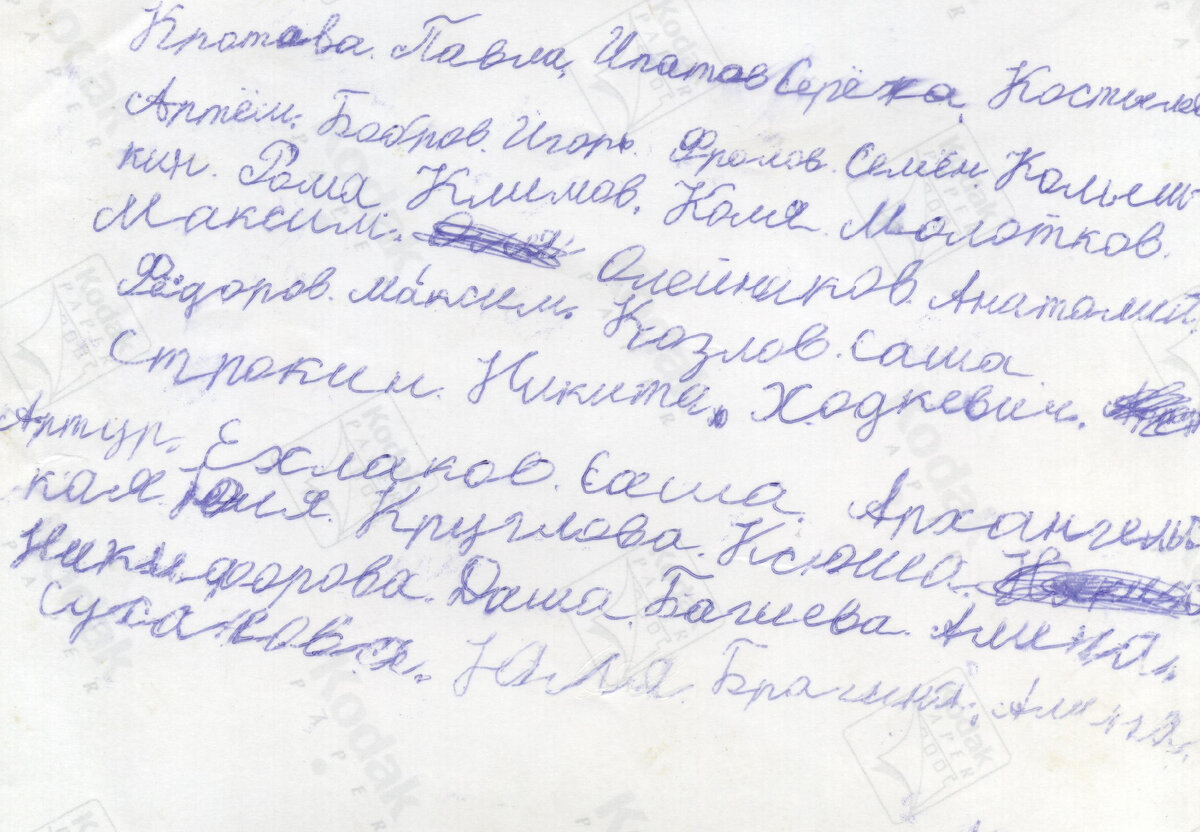 Кротова. Павла, Ипатов Серёжа, Костылев
Артём. Бобров. Игорь. Фролов. Семён. Колыш-
кин. Рома Климов. Коля Молотков.
Максим. Олейников. Анатолий
Фёдоров. Максим. Козлов. Саша.
Строкин. Никита. Ходкевич.
Артур. Ехлаков. Саша. Архангельс
кая. Юля. Круглова. Ксюша.
Никифорова. Даша. Багиева. Амина.
Сусакова. Юля. Брагина. Алина.
Kodak
PAPER